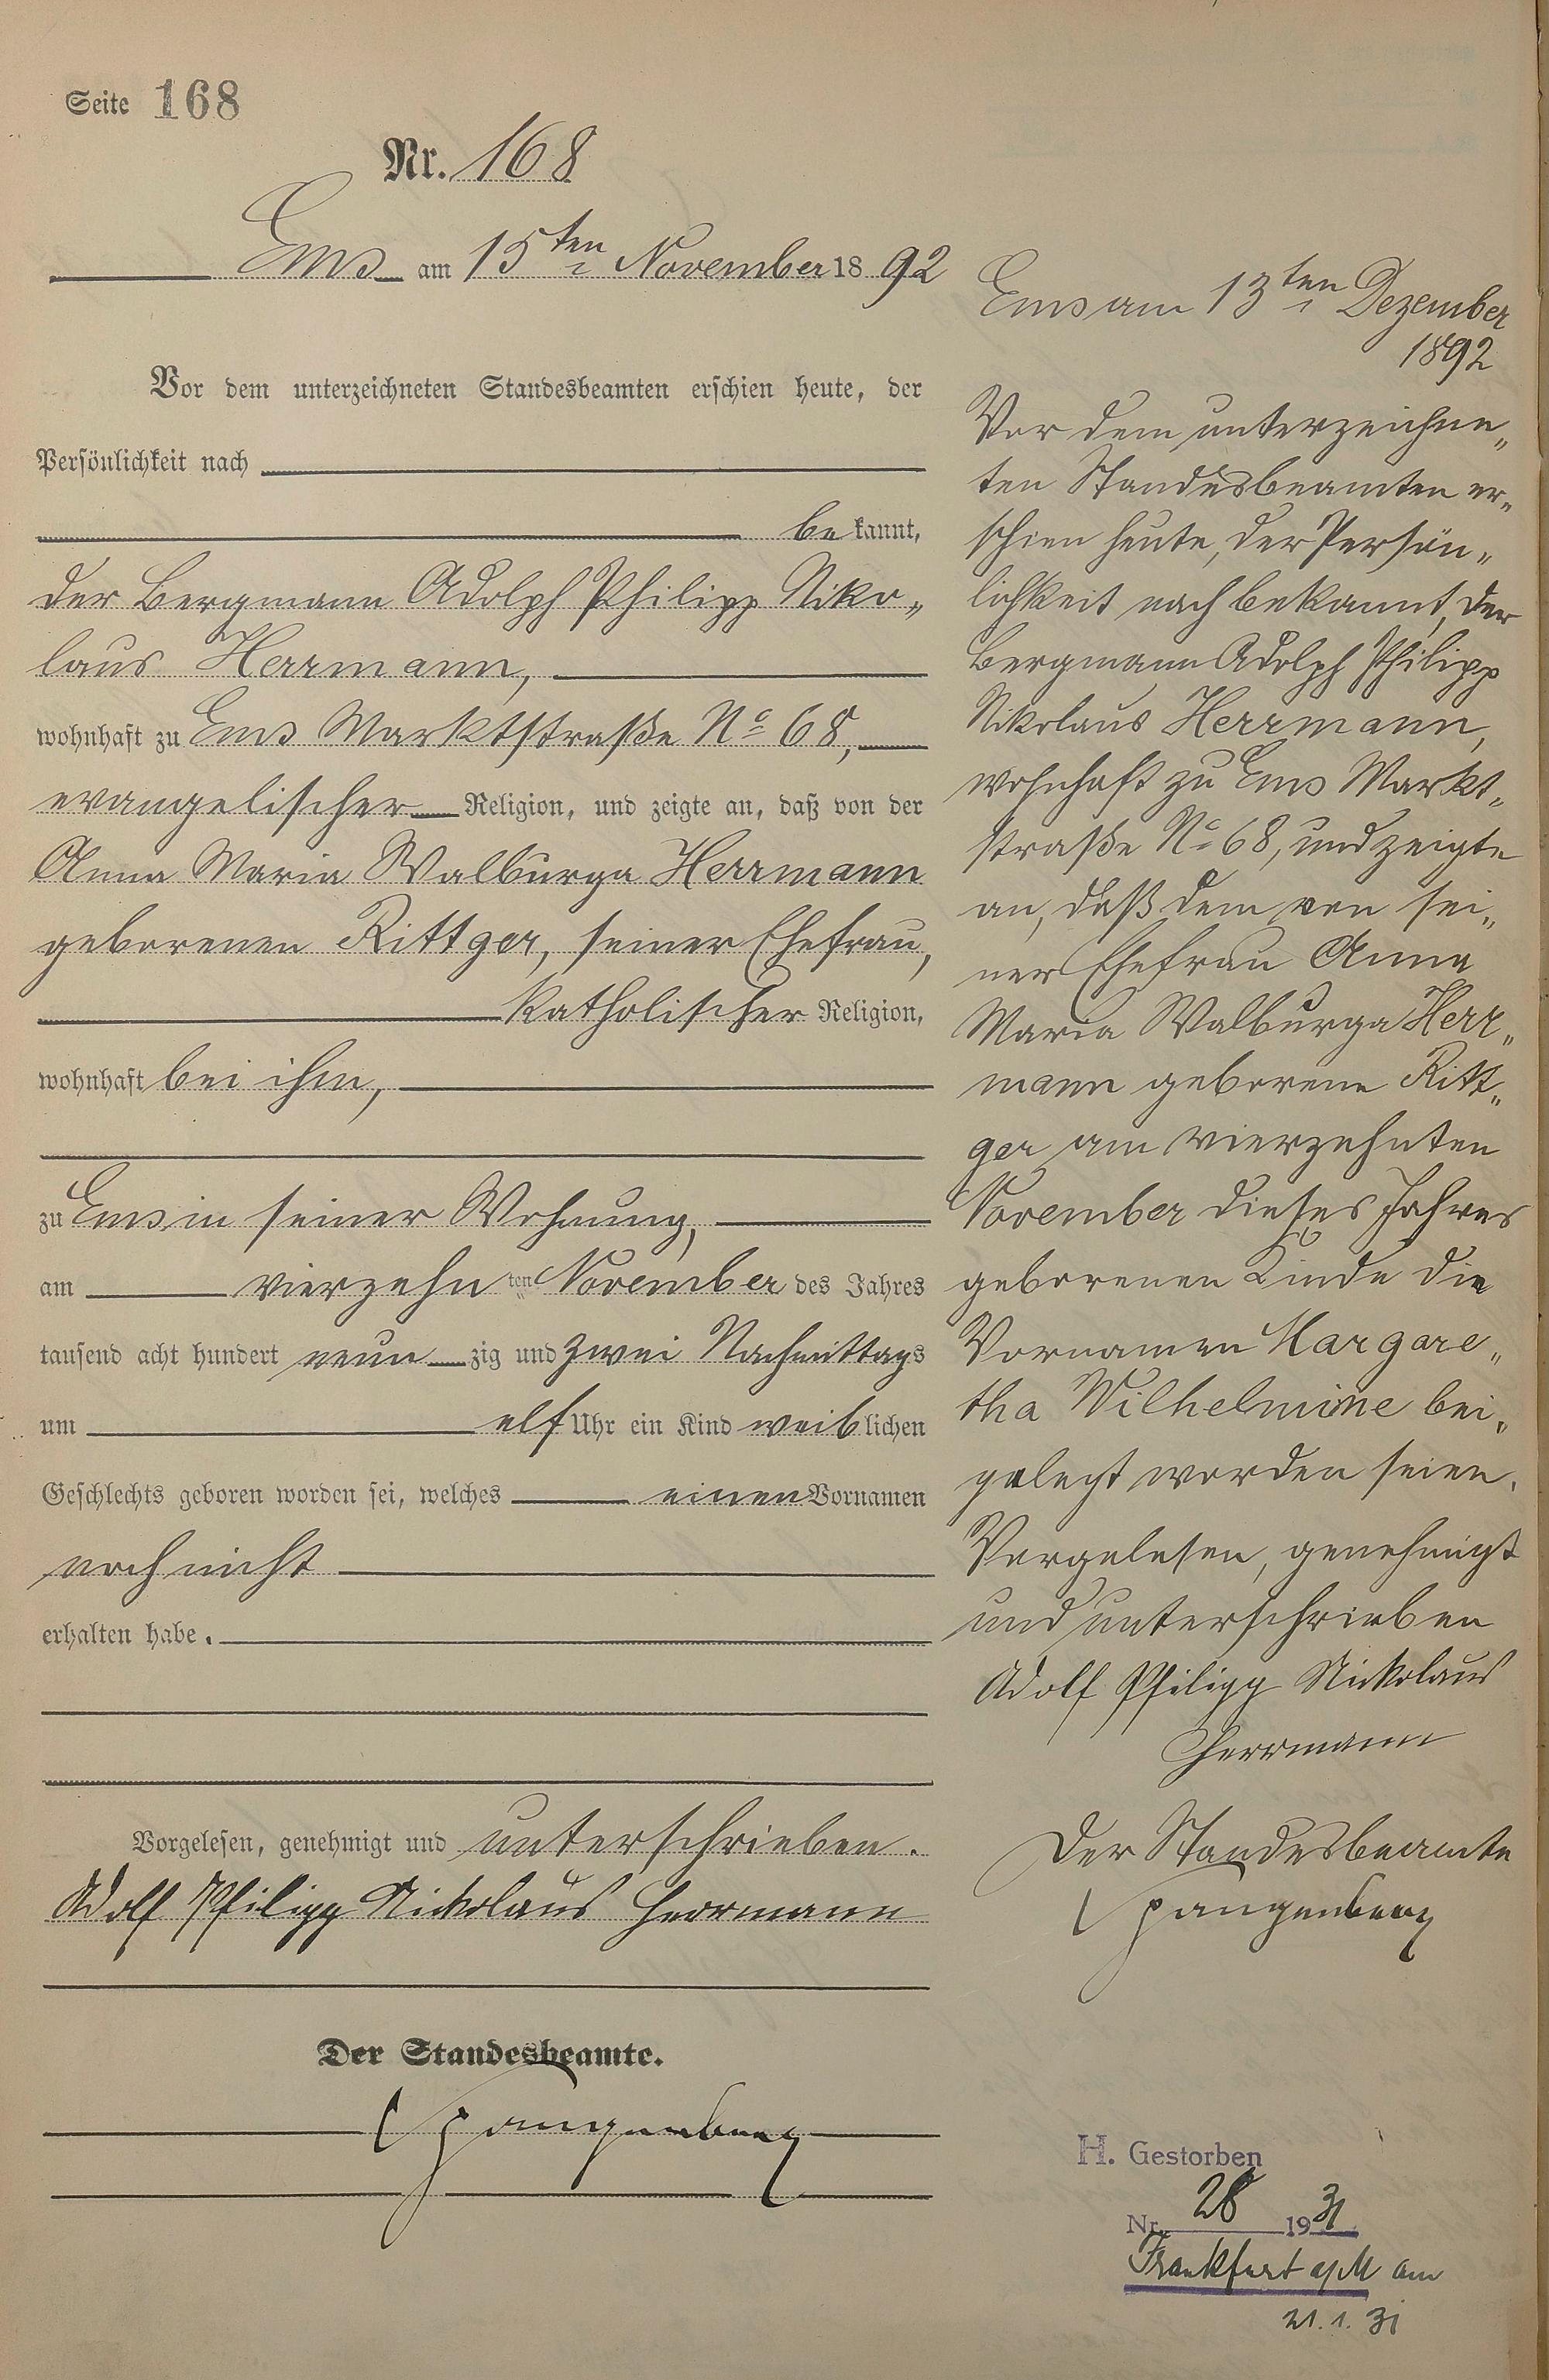 Seite 168
Nr. 168
Ems am 15ten November 1892
Vor dem unterzeichneten Standesbeamten erschien heute, der
Persönlichkeit nach
bekannt,
der Bergmann Adolph Philipp Niko„
laus Herrmann,
wohnhaft zu Ems Marktstraße No 68,
evangelischer Religion, und zeigte an, daß von der
Anna Maria Walburga Herrmann
geborenen Rittger, seiner Ehefrau,
katholischer Religion,
wohnhaft bei ihm,
zu Ems in seiner Wohnung,
am vierzehnten November des Jahres
tausend acht hundert neunzig und zwei Nachmittags
um elf Uhr ein Kind weiblichen
Geschlechts geboren worden sei, welches einen Vornamen
noch nicht
erhalten habe.
Vorgelesen, genehmigt und unterschrieben.
Adolf Philipp Nickolaus Herrmann
Der Standesbeamte.
Spangenberg
Ems am 13ten Dezember
1892
Vor dem unterzeichne„
ten Standesbeamten er„
schien heute, der Persön„
lichkeit nach bekannt, der
Bergmann Adolph Philipp
Nikolaus Herrmann,
wohnhaft zu Ems Markt„
straße No 68, und zeigte
an, daß dem von sei„
ner Ehefrau Anna
Maria Walburga Herr„
mann geborene Ritt„
ger am vierzehnten
November dieses Jahres
geborenen Kinde die
Vornamen Margare„
tha Wilhelmine bei„
gelegt worden seien.
Vorgelesen, genehmigt
und unterschrieben
Adolf Philipp Nickolaus
Herrmann
Der Standesbeamte
Spangenberg
H. Gestorben
Nr. 28 1931
Frankfurt a/M am
21.1.31